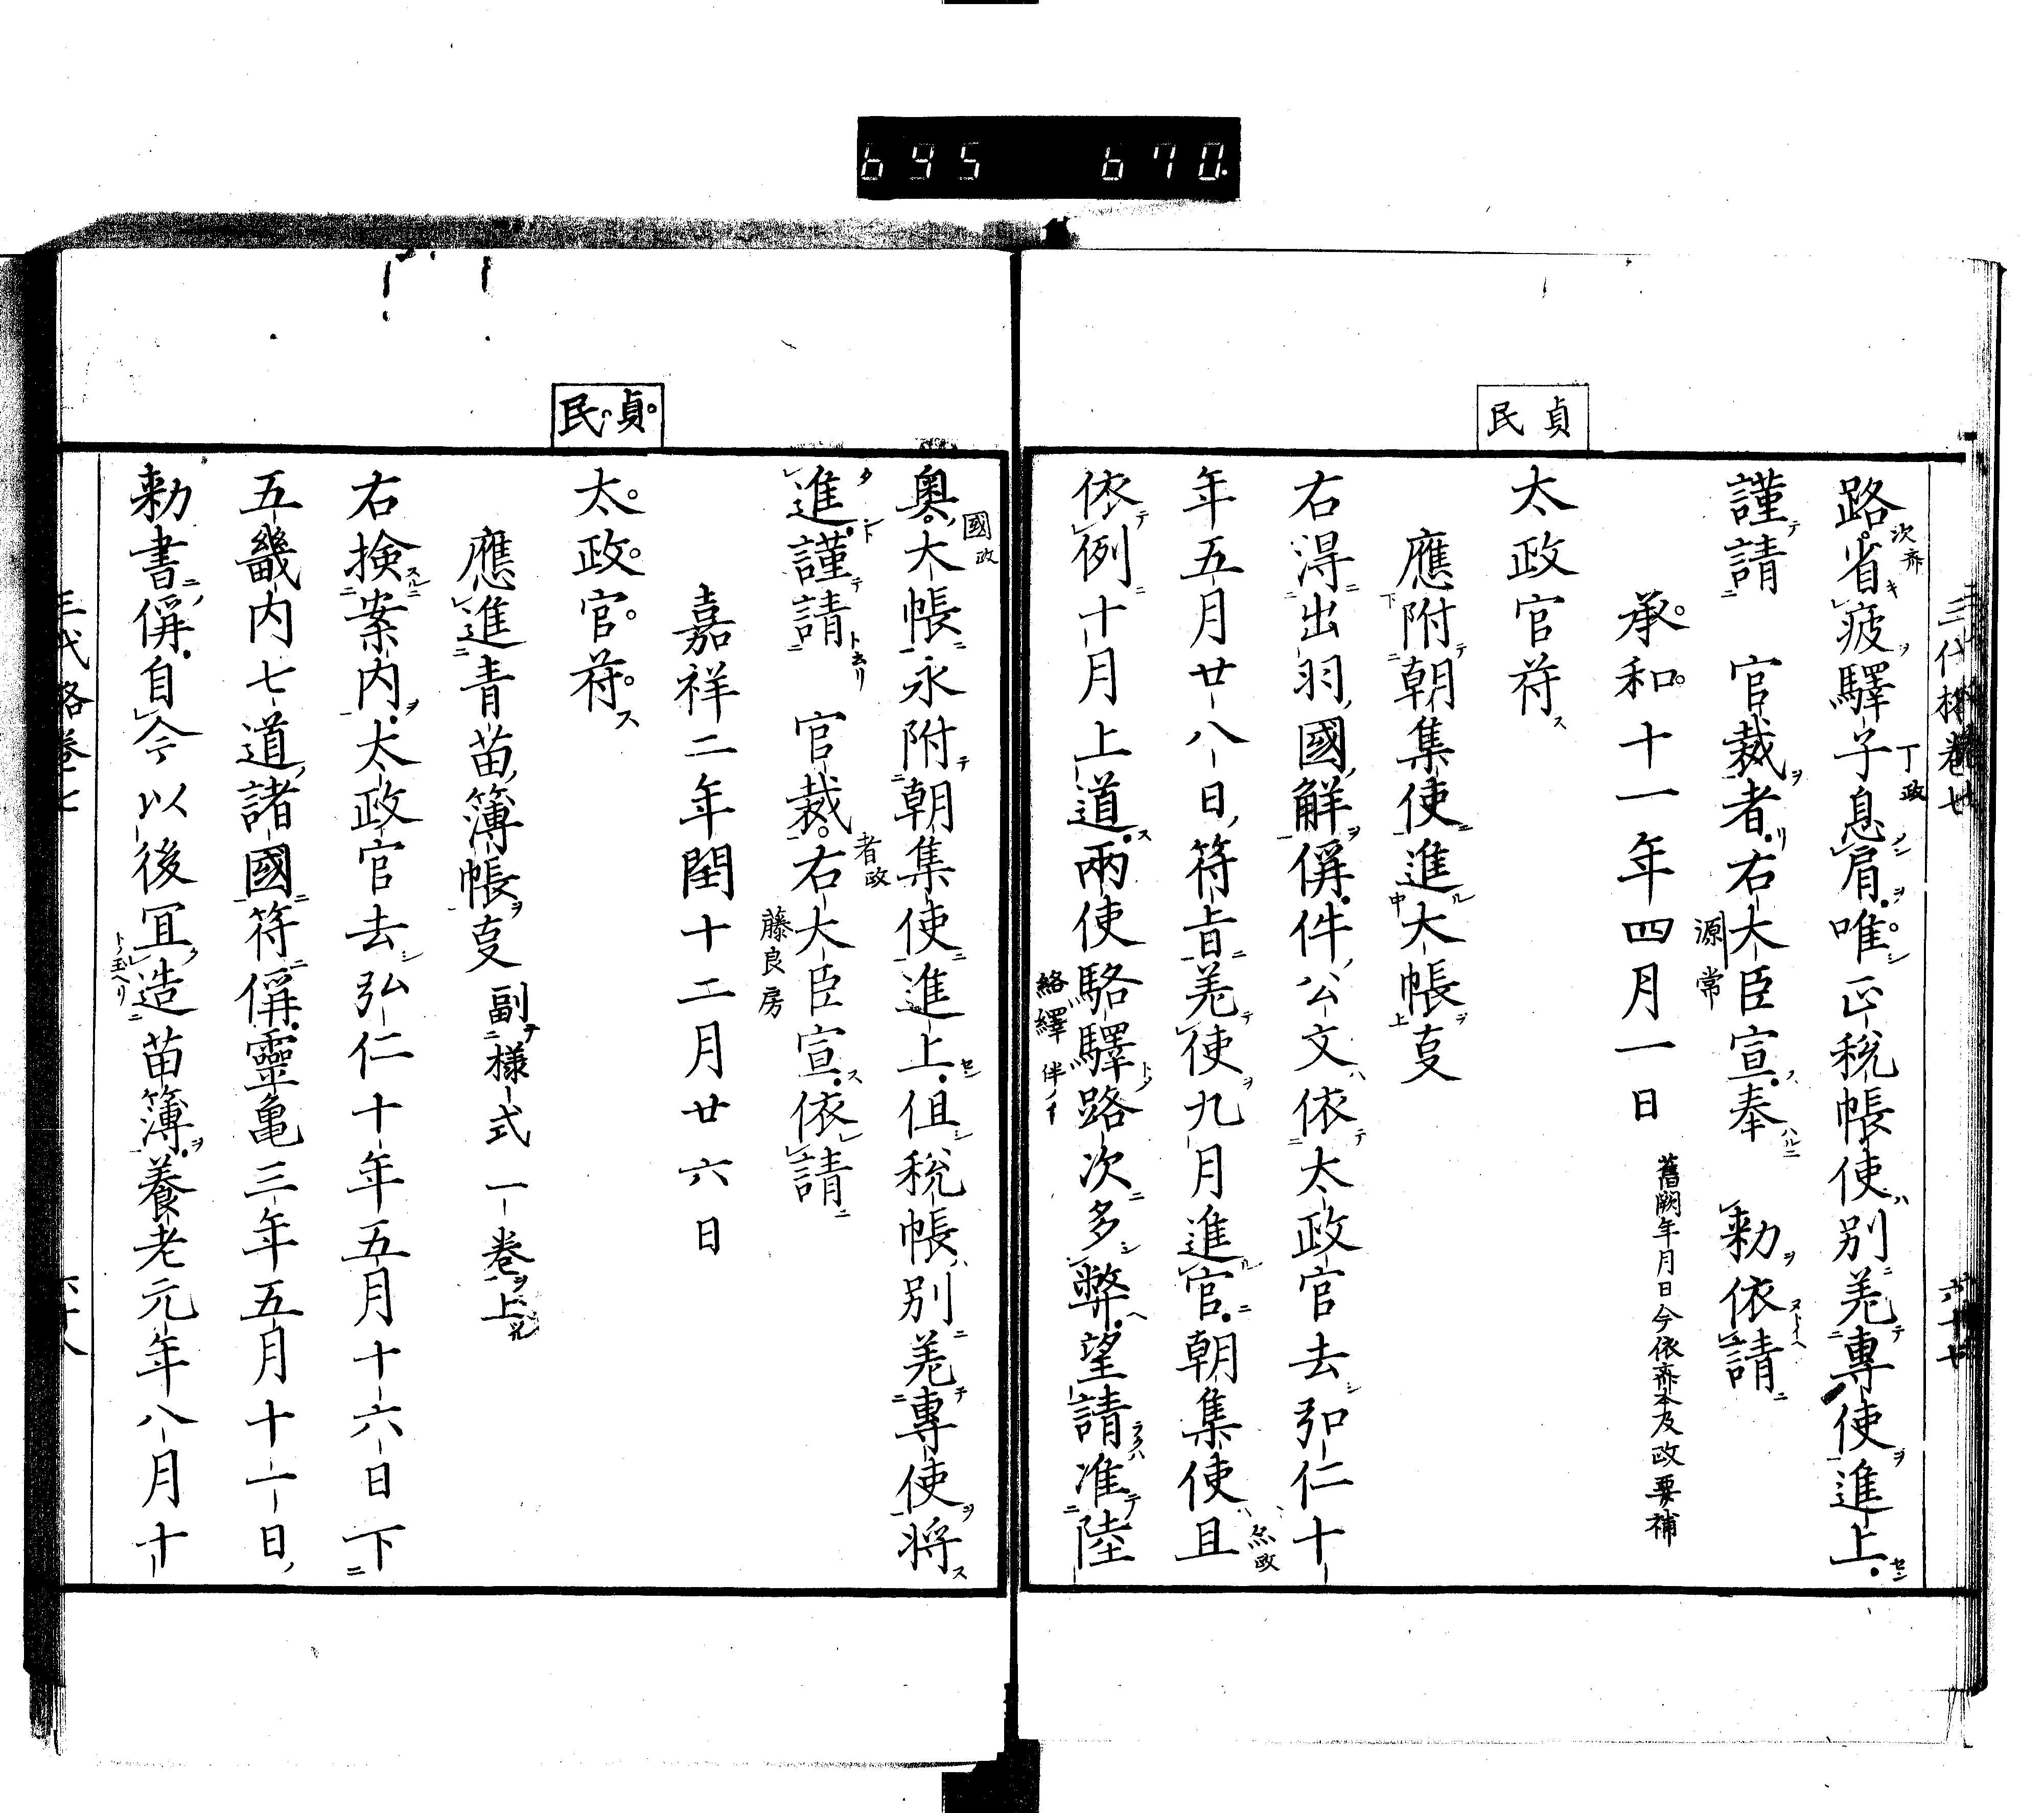 695 670.
貞民
路省疲驛子息肩唯正税帳使別差專使進上
謹請 官裁者右大臣宣奉 勅依請
承和十一年四月一日 舊闕年月日今依齋本及政要補
太政官符
應附朝集使進大帳事
右得出羽國解偁件公文依太政官去弘仁十
年五月廿八日符旨差使九月進官朝集使且
依例十月上道兩使駱驛路次多弊望請准陸
次齋
丁政
源常
絡繹
貞民
奥大帳永附朝集使進上但税帳別差專使將
進謹請 官裁右大臣宣依請
嘉祥二年閏十二月廿六日
太政官符
應進青苗簿帳事 副様式一卷
右撿案内太政官去弘仁十年五月十六日下
五畿内七道諸國符偁靈龜三年五月十一日
勅書偁自今以後宜造苗簿養老元年八月十
國政
者政
藤良房